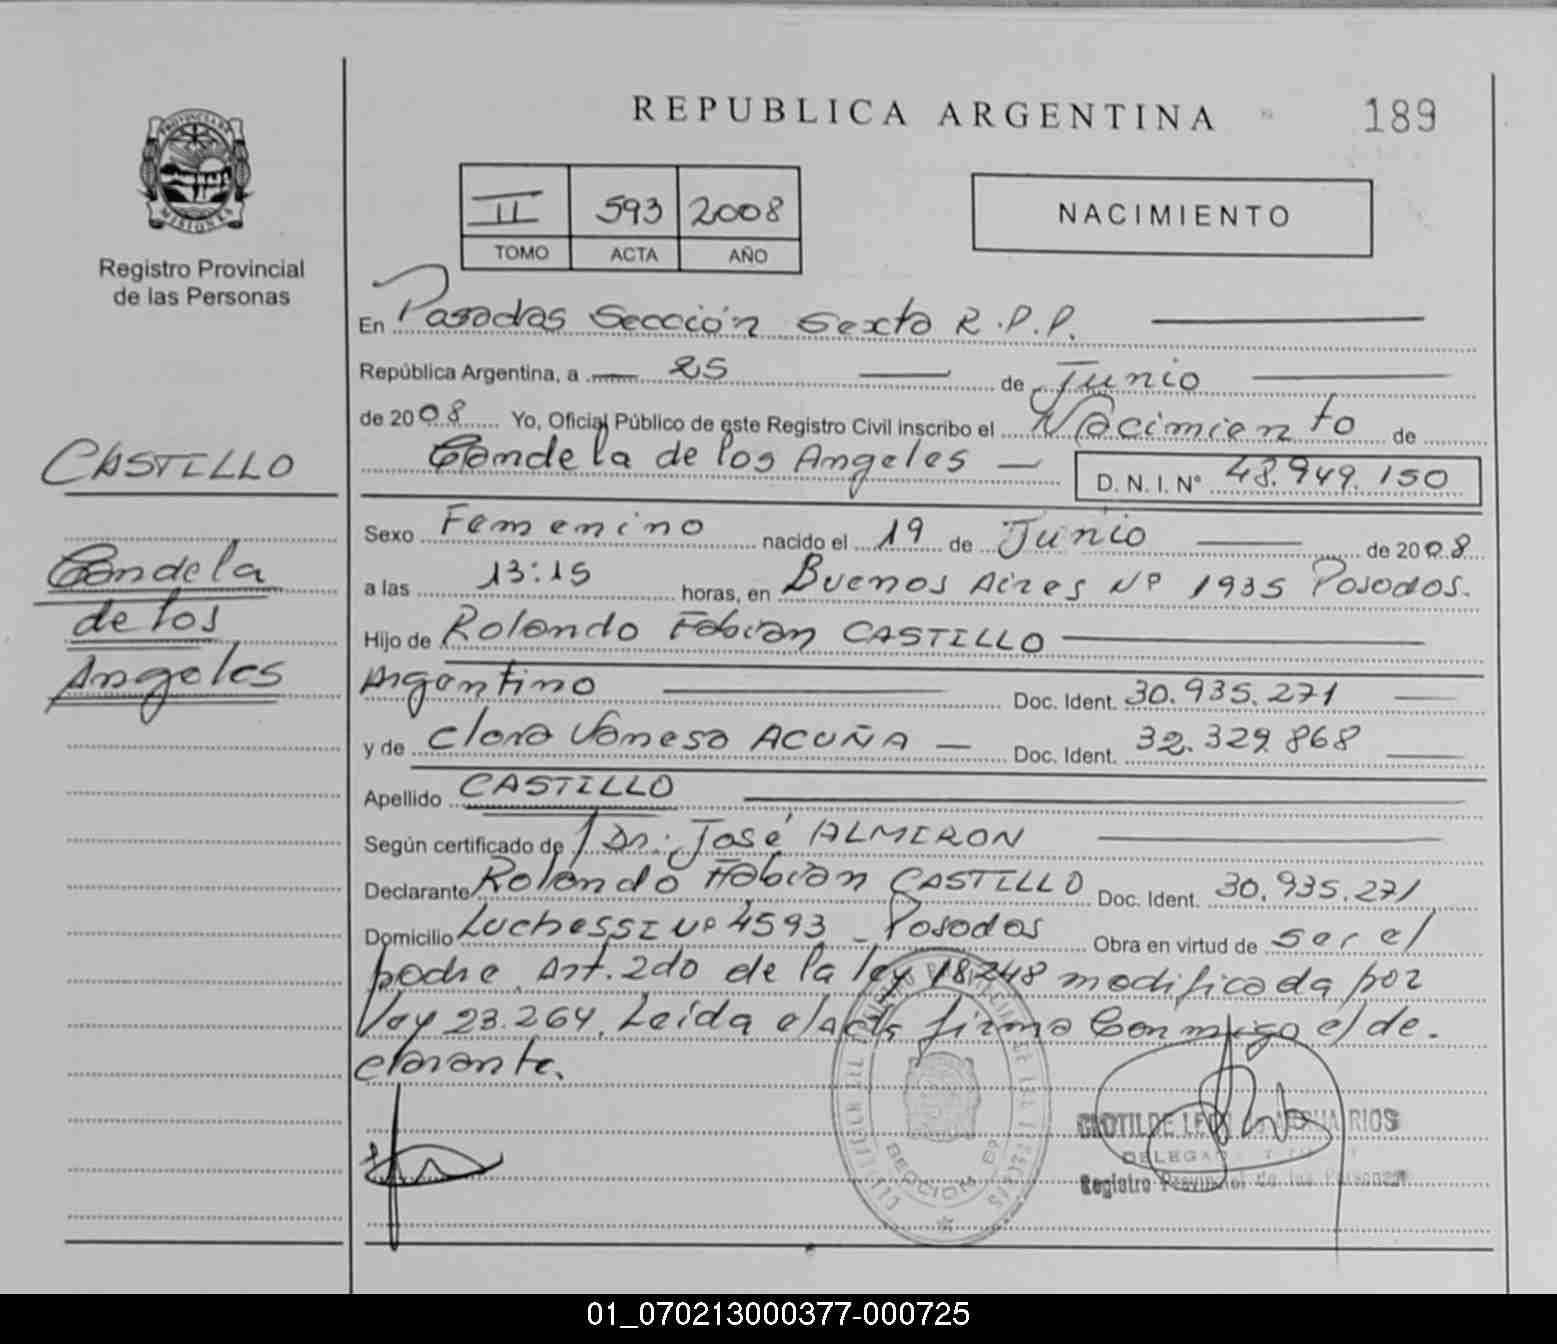 REPUBLICA ARGENTINA
189
PROVINCIA DE
MISIONES
Registro Provincial
de las Personas
II 593 2008
TOMO ACTA AÑO
NACIMIENTO
En Posadas Sección Sexta R.P.P.
República Argentina, a 25 de Junio
de 2008 Yo, Oficial Público de este Registro Civil inscribo el Nacimiento de
Candela de los Angeles
D. N. I. N° 48.949.150
CASTILLO
Candela
de los
Angeles
Sexo Femenino nacido el 19 de Junio de 2008
a las 13:15 horas, en Buenos Aires Nº 1935 Posadas.
Hijo de Rolando Fabian CASTILLO
Argentino Doc. Ident. 30.935.271
y de Clara Vanesa ACUÑA Doc. Ident. 32.329.868
Apellido CASTILLO
Según certificado de Dr. José ALMIRON
Declarante Rolando Fabian CASTILLO Doc. Ident. 30.935.271
Domicilio Luchessi Nº 4593 - Posadas Obra en virtud de ser el
padre. Art. 2do de la ley 18248 modificada por
ley 23.264. Leida el acta firma conmigo el de-
clarante.
SECCION 6º
CLOTILDE RIOS
Registro Provincial de las Personas
01_070213000377-000725